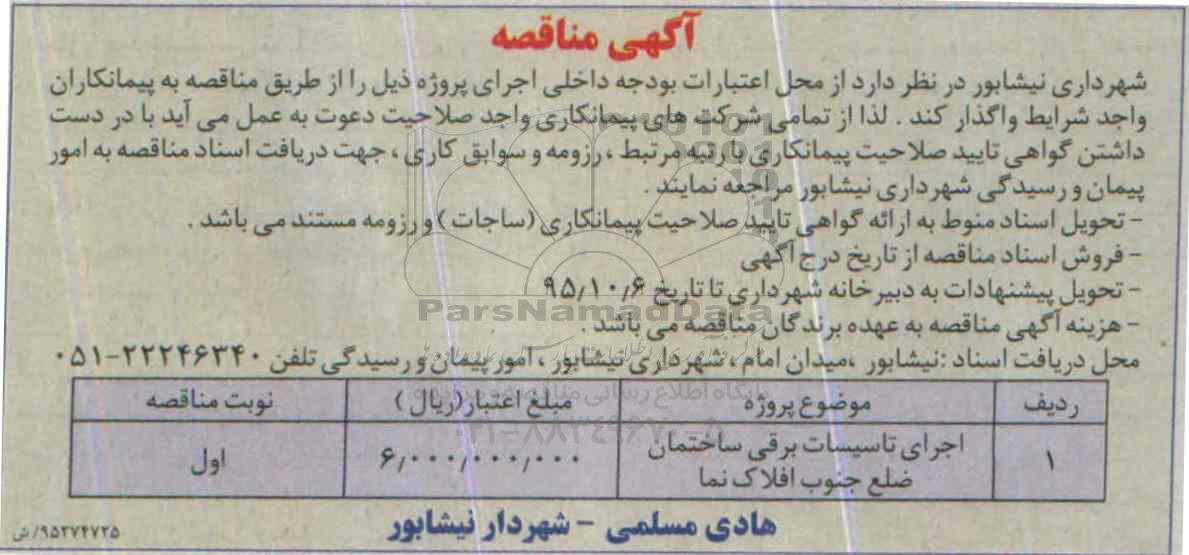 آگهی مناقصه
شهرداری نیشابور در نظر دارد از محل اعتبارات بودجه داخلی اجرای پروژه ذیل را از طریق مناقصه به پیمانکاران
واجد شرایط واگذار کند . لذا از تمامی شرکت های پیمانکاری واجد صلاحیت دعوت به عمل می آید با در دست
داشتن گواهی تایید صلاحیت پیمانکاری با رتبه مرتبط ، رزومه و سوابق کاری ، جهت دریافت اسناد مناقصه به امور
پیمان و رسیدگی شهرداری نیشابور مراجعه نمایند .
- تحویل اسناد منوط به ارائه گواهی تایید صلاحیت پیمانکاری (ساجات ) و رزومه مستند می باشد .
- فروش اسناد مناقصه از تاریخ درج آگهی
- تحویل پیشنهادات به دبیرخانه شهرداری تا تاریخ ۹۵/۱۰/۶
ParsNamadData
- هزینه آگهی مناقصه به عهده برندگان مناقصه می باشد .
محل دریافت اسناد :نیشابور ،میدان امام ، شهرداری نیشابور ، امور پیمان و رسیدگی تلفن ۲۲۲۴۶۳۴۰-۰۵۱
پایگاه اطلاع رسانی مناقصه و مزایده
ردیف موضوع پروژه مبلغ اعتبار(ریال ) نوبت مناقصه
۰۲۱-۸۸۳۴۹۶۷۰-۵
۱ اجرای تاسیسات برقی ساختمان ضلع جنوب افلاک نما ۶/۰۰۰/۰۰۰/۰۰۰ اول
هادی مسلمی - شهردار نیشابور
۹۵۳۷۴۷۲۵/ ش